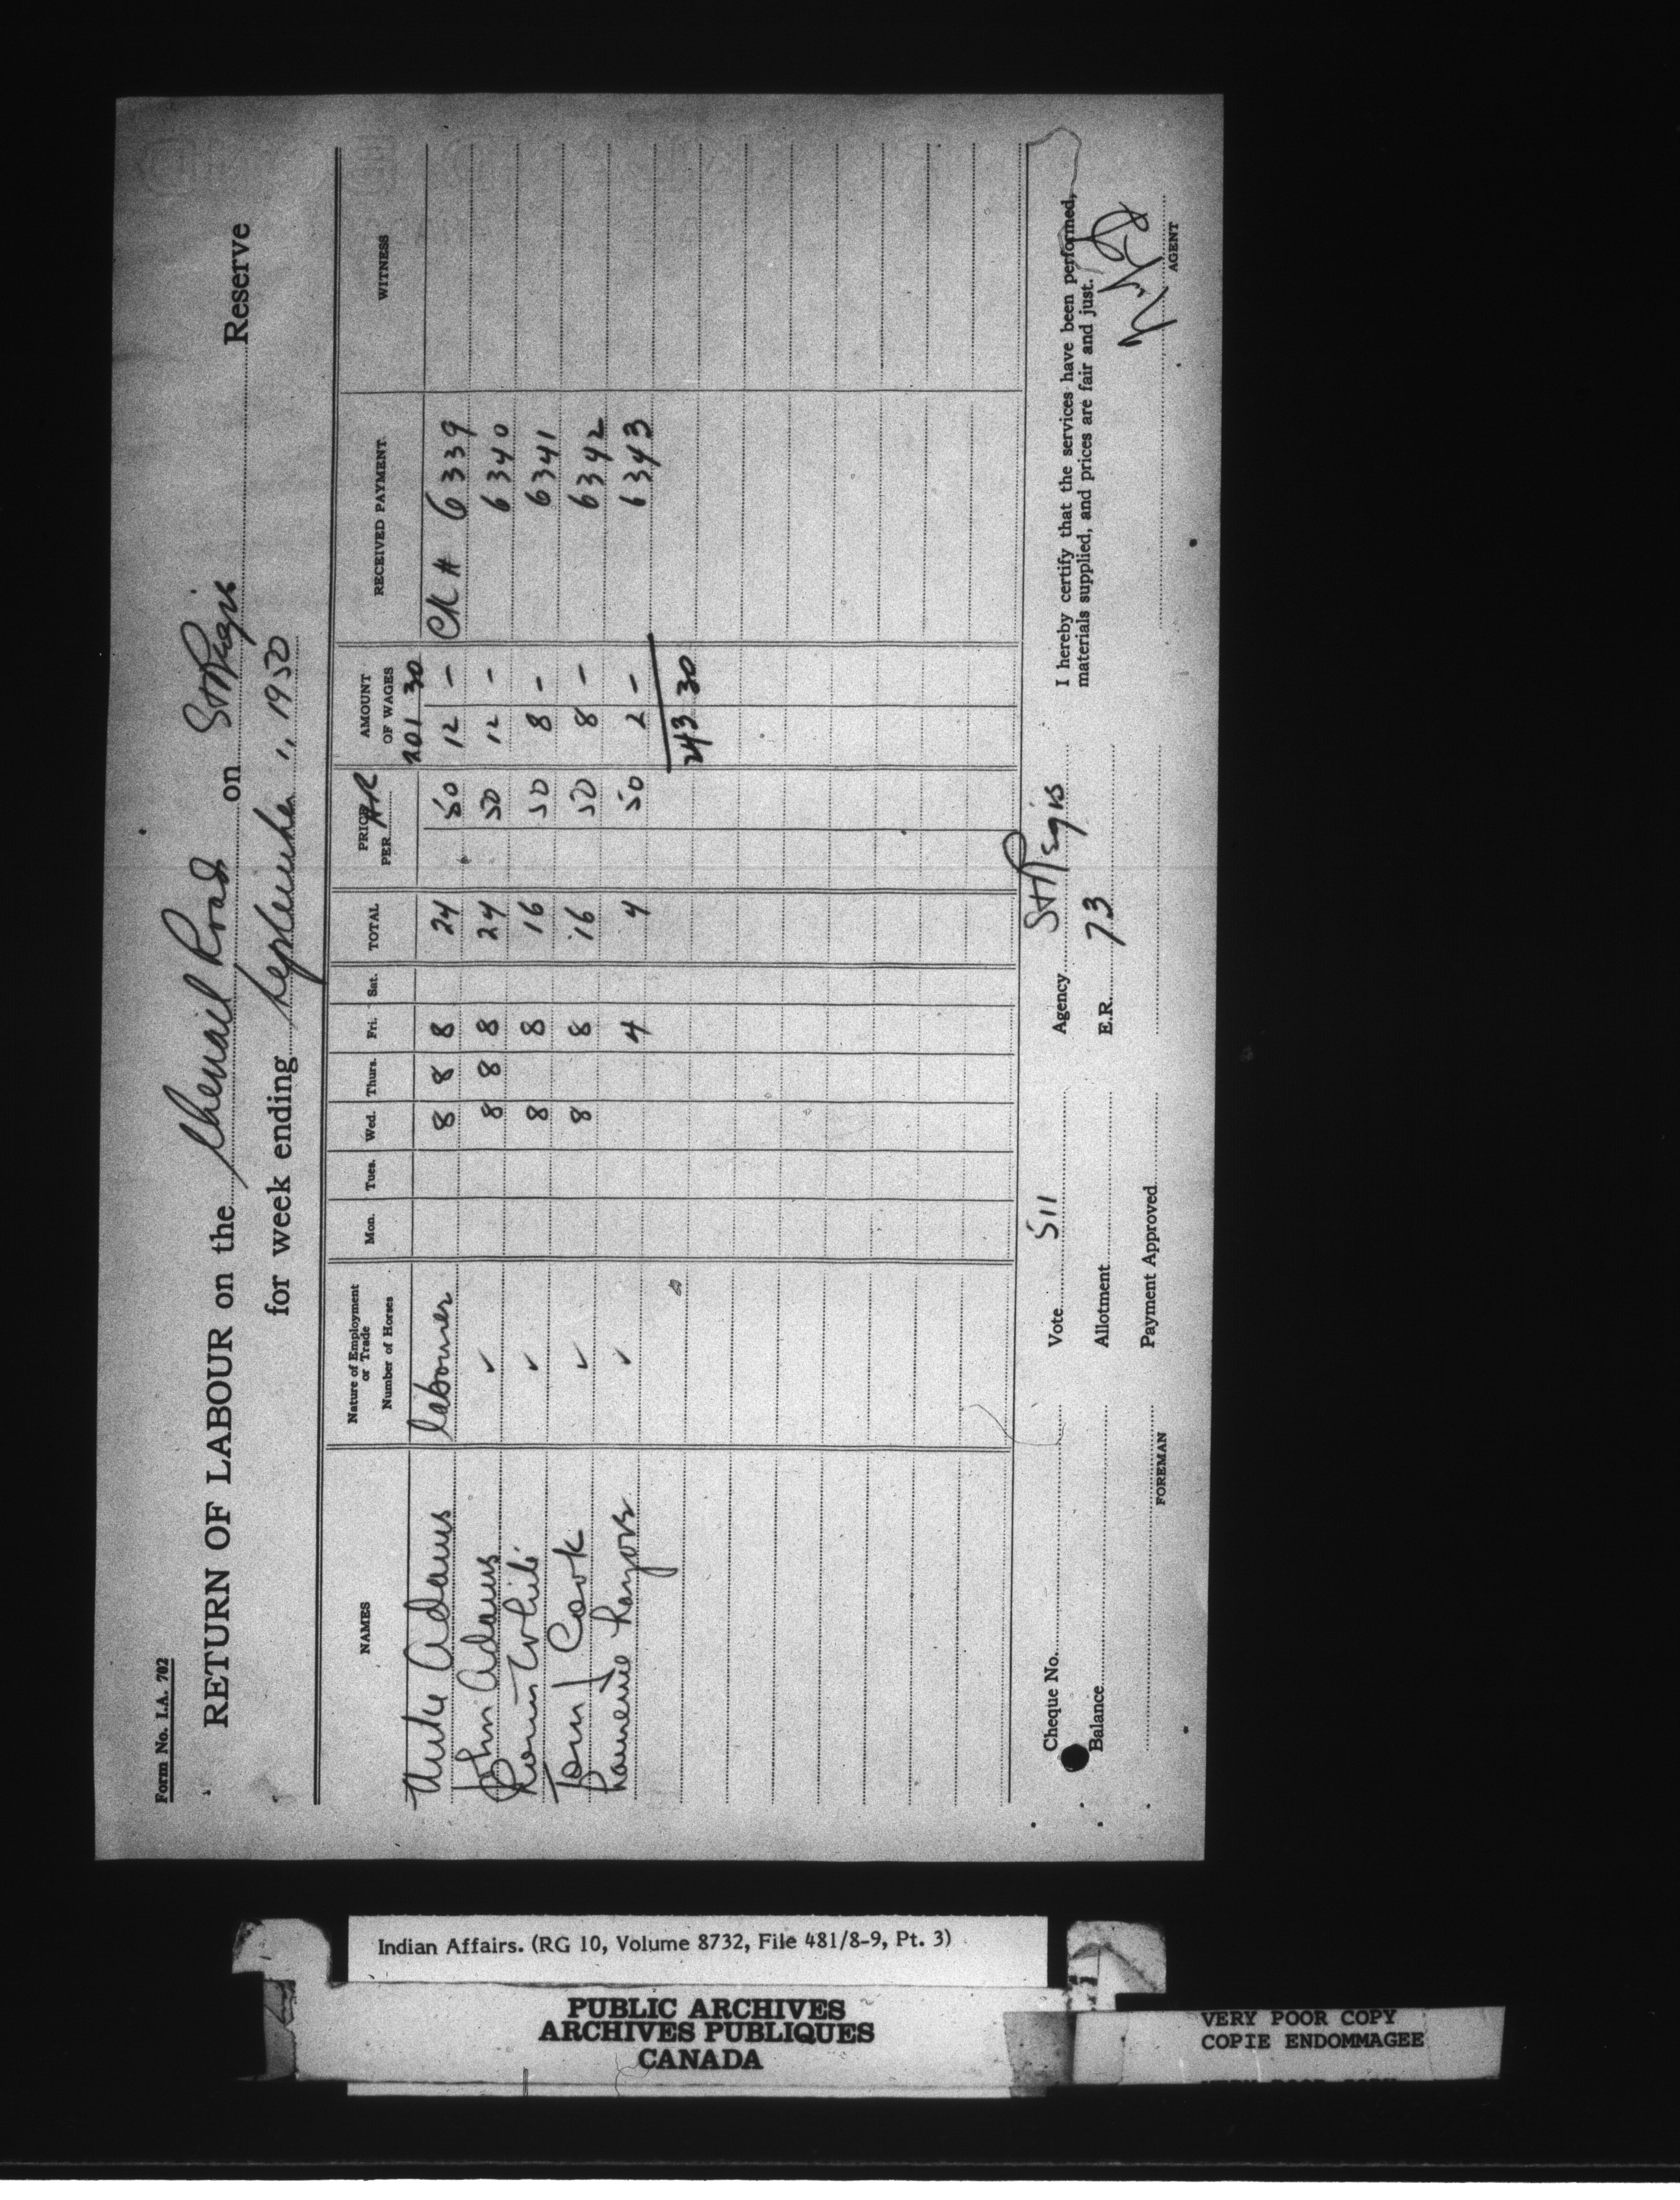 Form No. I.A. 702
RETURN OF LABOUR on the Chenail Road on St Regis Reserve
for week ending September 1, 1950
NAMES Nature of Employment or Trade Number of Horses Mon. Tues. Wed. Thurs. Fri. Sat. TOTAL PRICE PER HR AMOUNT OF WAGES RECEIVED PAYMENT WITNESS
201 30
Mike Adams labourer 8 8 8 24 50 12 - CK # 6339
John Adams ✓ 8 8 8 24 50 12 - 6340
White ✓ 8 8 16 50 8 - 6341
Tom J Cook ✓ 8 8 16 50 8 - 6342
✓ 4 4 50 2 - 6343
243 30
Cheque No. Vote 511 Agency St Regis I hereby certify that the services have been performed,
Balance Allotment E.R. 73 materials supplied, and prices are fair and just.
Payment Approved
FOREMAN AGENT
Indian Affairs. (RG 10, Volume 8732, File 481/8-9, Pt. 3)
PUBLIC ARCHIVES
ARCHIVES PUBLIQUES
CANADA
VERY POOR COPY
COPIE ENDOMMAGEE